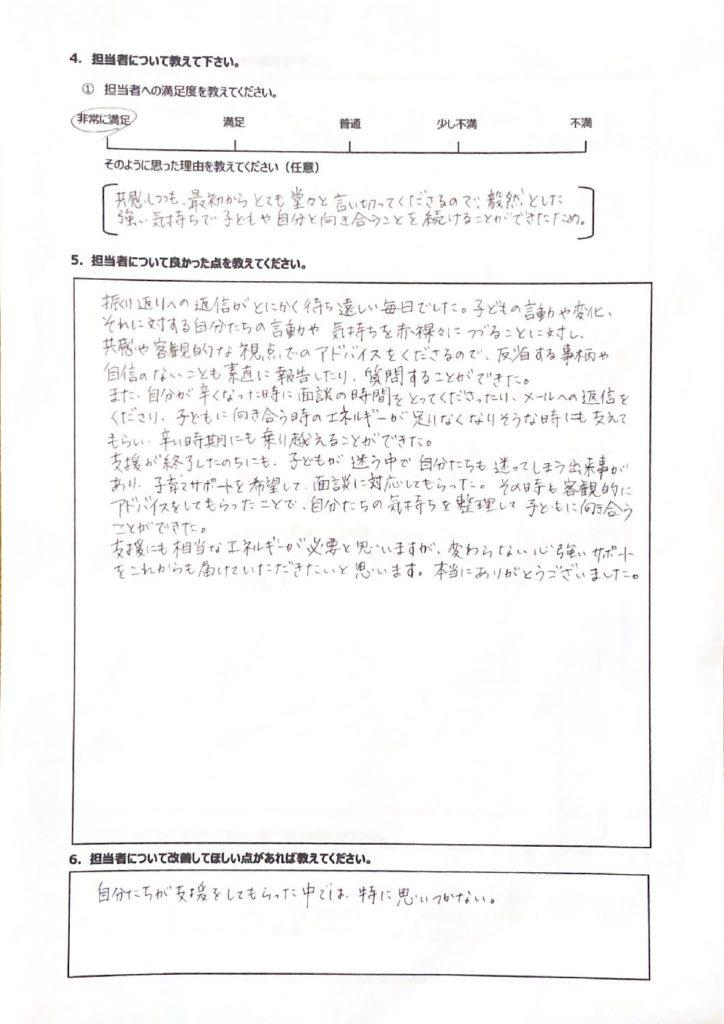 4. 担当者について教えて下さい。
① 担当者への満足度を教えてください。
非常に満足 満足 普通 少し不満 不満
そのように思った理由を教えてください（任意）
共感しつつも、最初からとても堂々と言い切ってくださるので、毅然とした
強い気持ちで子どもや自分と向き合うことを続けることができたため。
5. 担当者について良かった点を教えてください。
振り返りへの返信がとにかく待ち遠しい毎日でした。子どもの言動や変化、
それに対する自分たちの言動や 気持ちを赤裸々につづることに対し、
共感や客観的な視点でのアドバイスをくださるので、反省する事柄や
自信のないことも素直に報告したり、質問することができた。
また、自分が辛くなった時に面談の時間をとってくださったり、メールへの返信を
くださり、子どもに向き合う時のエネルギーが足りなくなりそうな時にも支えて
もらい、辛い時期にも乗り越えることができた。
支援が終了したのちにも、子どもが迷う中で自分たちも迷ってしまう出来事が
あり、子育てサポートを希望して、面談に対応してもらった。その時も客観的に
アドバイスをしてもらったことで、自分たちの気持ちを整理して子どもに向き合う
ことができた。
支援にも相当なエネルギーが必要と思いますが、変わらない心強いサポート
をこれからも届けていただきたいと思います。本当にありがとうございました。
6. 担当者について改善してほしい点があれば教えてください。
自分たちが支援をしてもらった中では、特に思いつかない。